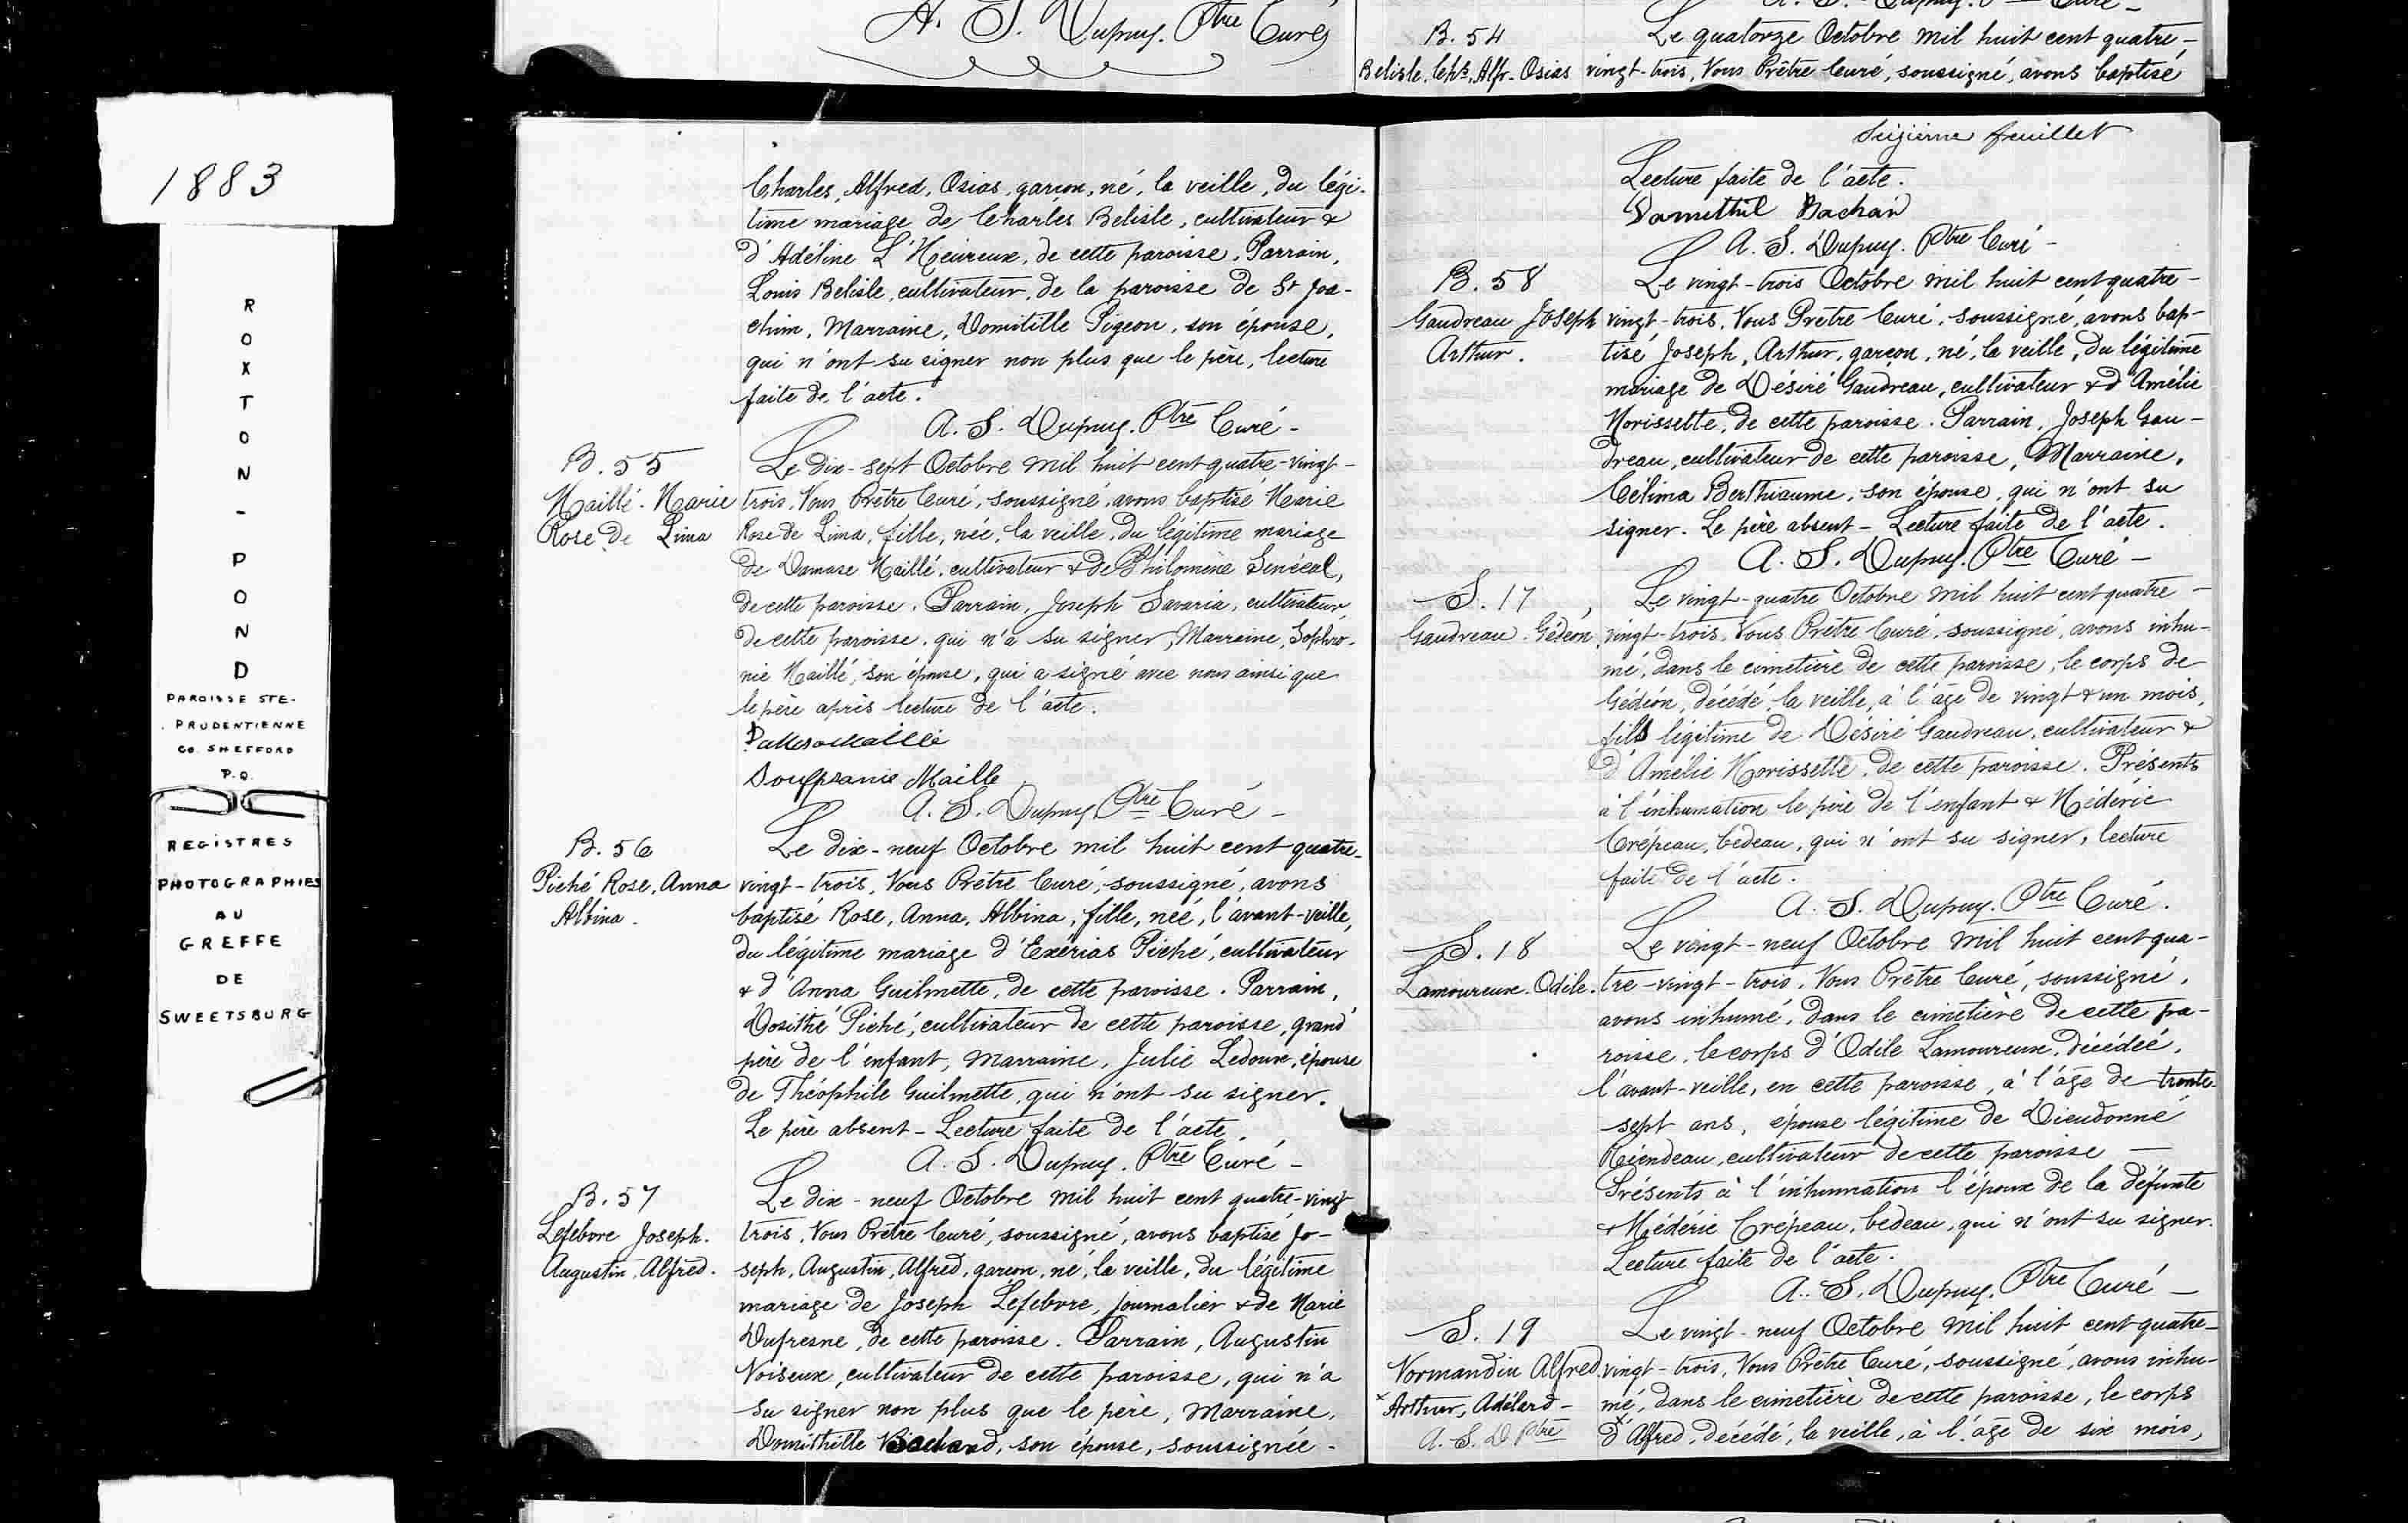 A. S. Dupuy. Ptre Curé
B. 54
Belisle. Chs. Alfr. Osias
Le quatorze Octobre mil huit cent quatre-
vingt-trois, Nous Prêtre Curé, soussigné, avons baptisé
1883
ROXTON-POND
PAROISSE STE-
PRUDENTIENNE
CO. SHEFFORD
P.Q.
REGISTRES
PHOTOGRAPHIES
AU
GREFFE
DE
SWEETSBURG
Charles, Alfred, Osias, garçon, né, la veille, du légi-
time mariage de Charles Belisle, cultivateur &
d'Adéline L'Heureux, de cette paroisse. Parrain,
Louis Belisle, cultivateur, de la paroisse de St Joa-
chim, Marraine, Domitille Pigeon, son épouse,
qui n'ont su signer non plus que le père, lecture
faite de l'acte.
A. S. Dupuy. Ptre Curé -
B. 55
Maillé. Marie
Rose de Lima
Le dix-sept Octobre mil huit cent quatre-vingt-
trois, Nous Prêtre Curé, soussigné, avons baptisé Marie
Rose de Lima, fille, née, la veille, du légitime mariage
de Damase Maillé, cultivateur & de Philomène Senécal,
de cette paroisse. Parrain, Joseph Savaria, cultivateur
de cette paroisse, qui n'a su signer, Marraine, Sophro-
nie Maillé, son épouse, qui a signé avec nous ainsi que
le père après lecture de l'acte.
Maille
A. S. Dupuy Ptre Curé -
B. 56
Piché Rose, Anna
Albina.
Le dix-neuf Octobre mil huit cent quatre-
vingt-trois, Nous Prêtre Curé, soussigné, avons
baptisé Rose, Anna, Albina, fille, née, l'avant-veille,
du légitime mariage d'Exérias Piché, cultivateur
& d'Anna Guilmette, de cette paroisse. Parrain,
Dosithé Piché, cultivateur de cette paroisse, grand
père de l'enfant, Marraine, Julie Ledoux, épouse
de Théophile Guilmette, qui n'ont su signer.
Le père absent - Lecture faite de l'acte.
A. S. Dupuy. Ptre Curé -
B. 57
Lefebvre Joseph.
Augustin, Alfred.
Le dix-neuf Octobre mil huit cent quatre-vingt
trois, Nous Prêtre Curé, soussigné, avons baptisé Jo-
seph, Augustin, Alfred, garçon, né, la veille, du légitime
mariage de Joseph Lefebvre, journalier & de Marie
Dufresne, de cette paroisse. Parrain, Augustin
Voiseux, cultivateur de cette paroisse, qui n'a
su signer non plus que le père, Marraine,
Domithille Bachand, son épouse, soussignée -
Seizième feuillet
Lecture faite de l'acte.
Domithil Bachan
A. S. Dupuy. Ptre Curé -
B. 58
Gaudreau Joseph
Arthur.
Le vingt-trois Octobre mil huit cent quatre-
vingt-trois, Nous Prêtre Curé, soussigné, avons bap-
tisé Joseph, Arthur, garçon, né, la veille, du légitime
mariage de Désiré Gaudreau, cultivateur & d'Amélie
Morissette, de cette paroisse. Parrain, Joseph Gau-
dreau, cultivateur de cette paroisse, Marraine,
Célima Berthiaume, son épouse, qui n'ont su
signer. Le père absent - Lecture faite de l'acte.
A. S. Dupuy. Ptre Curé -
S. 17
Gaudreau. Gédéon.
Le vingt-quatre Octobre mil huit cent quatre-
vingt-trois, Nous Prêtre Curé, soussigné, avons inhu-
mé, dans le cimetière de cette paroisse, le corps de
Gédéon, décédé, la veille, à l'âge de vingt & un mois,
fils légitime de Désiré Gaudreau, cultivateur &
d'Amélie Morissette, de cette paroisse. Présents
à l'inhumation le père de l'enfant & Médéric
Crépeau, bedeau, qui n'ont su signer, lecture
faite de l'acte.
A. S. Dupuy. Ptre Curé.
S. 18
Lamoureux. Odile.
Le vingt-neuf Octobre mil huit cent qua-
tre-vingt-trois, Nous Prêtre Curé, soussigné,
avons inhumé, dans le cimetière de cette pa-
roisse, le corps d'Odile Lamoureux, décédée,
l'avant-veille, en cette paroisse, à l'âge de trente-
sept ans, épouse légitime de Dieudonné
Riendeau, cultivateur de cette paroisse -
Présents à l'inhumation l'époux de la défunte
& Médéric Crépeau, bedeau, qui n'ont su signer.
Lecture faite de l'acte.
A. S. Dupuy. Ptre Curé -
S. 19
Normandin Alfred.
x Arthur, Adélard -
A. S. D Ptre
Le vingt-neuf Octobre mil huit cent quatre-
vingt-trois, Nous Prêtre Curé, soussigné, avons inhu-
mé, dans le cimetière de cette paroisse, le corps
d'x Alfred, décédé, la veille, à l'âge de six mois,